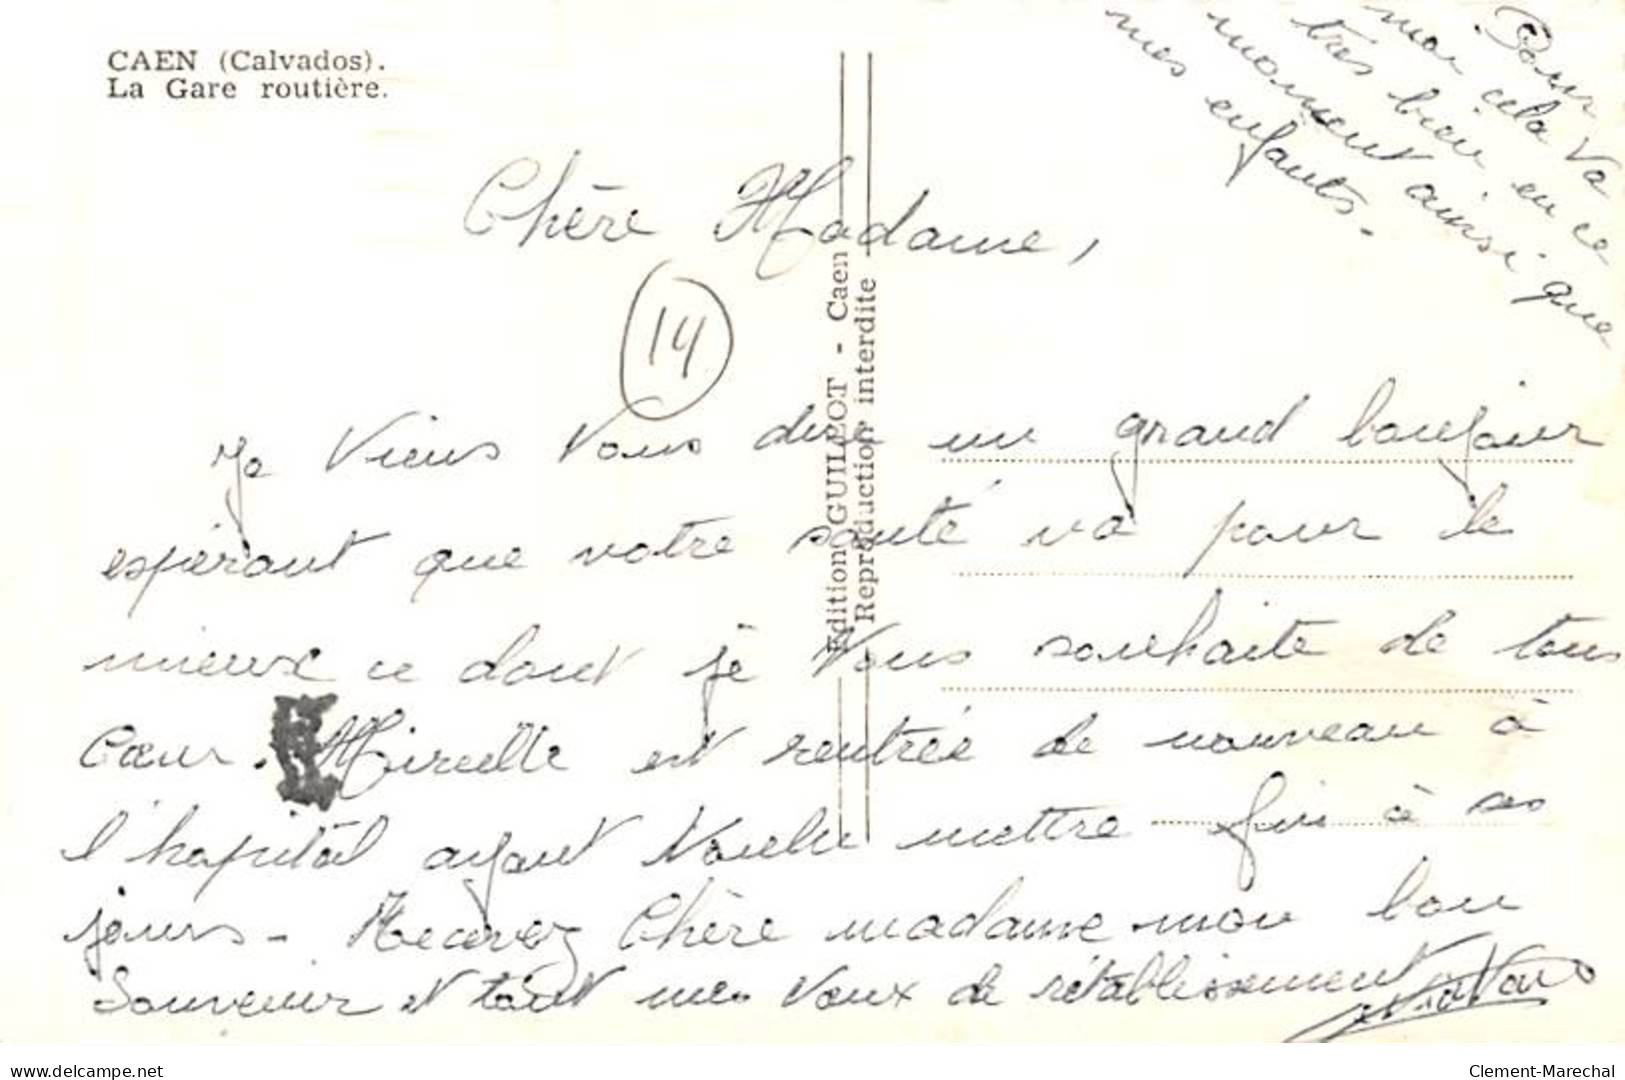 CAEN (Calvados).
La Gare routière.
Pour
moi cela va
très bien en ce
moment ainsi que
mes enfants.
Chère Madame,
14
Edition GUILLOT - Caen
Reproduction interdite
Je viens vous dire un grand bonjour
espérant que votre santé va pour le
mieux ce dont je vous souhaite de tous
Cœur. Mireille est rentrée de nouveau à
l'hopital ayant voulu mettre fin à ses
jours - Recevez Chère madame mon bon
Souvenir et tout mes vœux de rétablissement
delcampe.net
Clement-Marechal